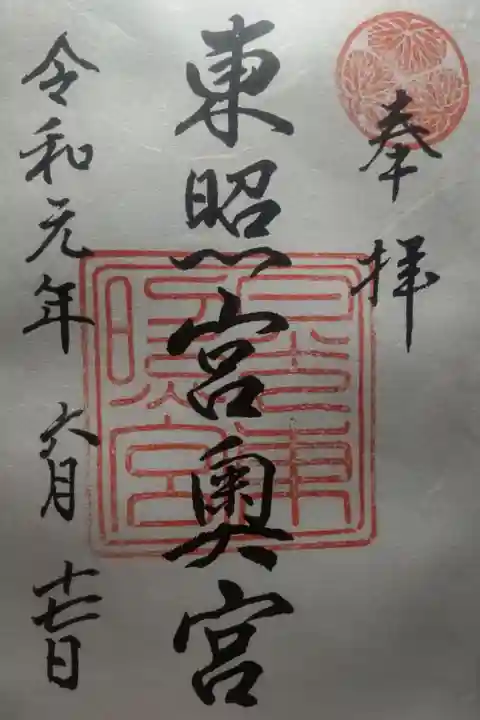 奉拝
東照宮奥宮
日光東
照宮
令和元年六月十七日